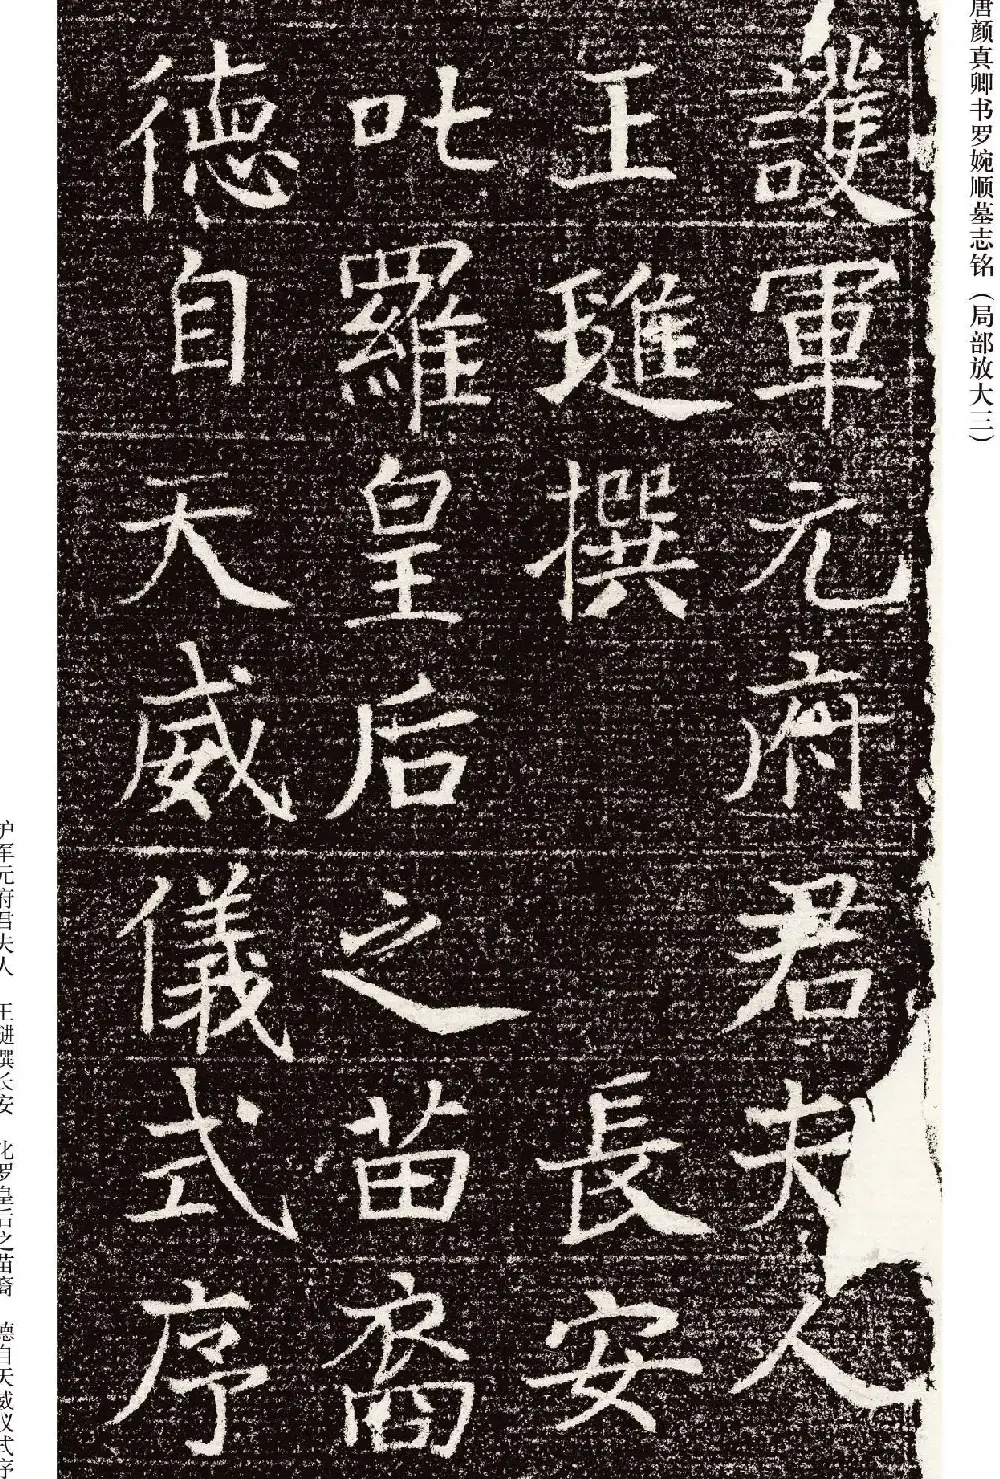 唐颜真卿书罗婉顺墓志铭（局部放大三）
護軍元府君夫人
王璡撰　長安
叱羅皇后之苗裔
德自天威儀式序
护军元府君夫人　王琎撰长安　叱罗皇后之苗裔　德自天威仪式序